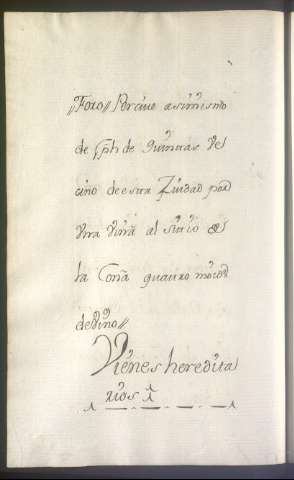 //Foro// Percivo asimismo
de Jph de quintas Ve
cino de esta Ziudad por
Vna Viña al sitio de
la Coña quatro moios
de Vino //
Vienes heredita
rios